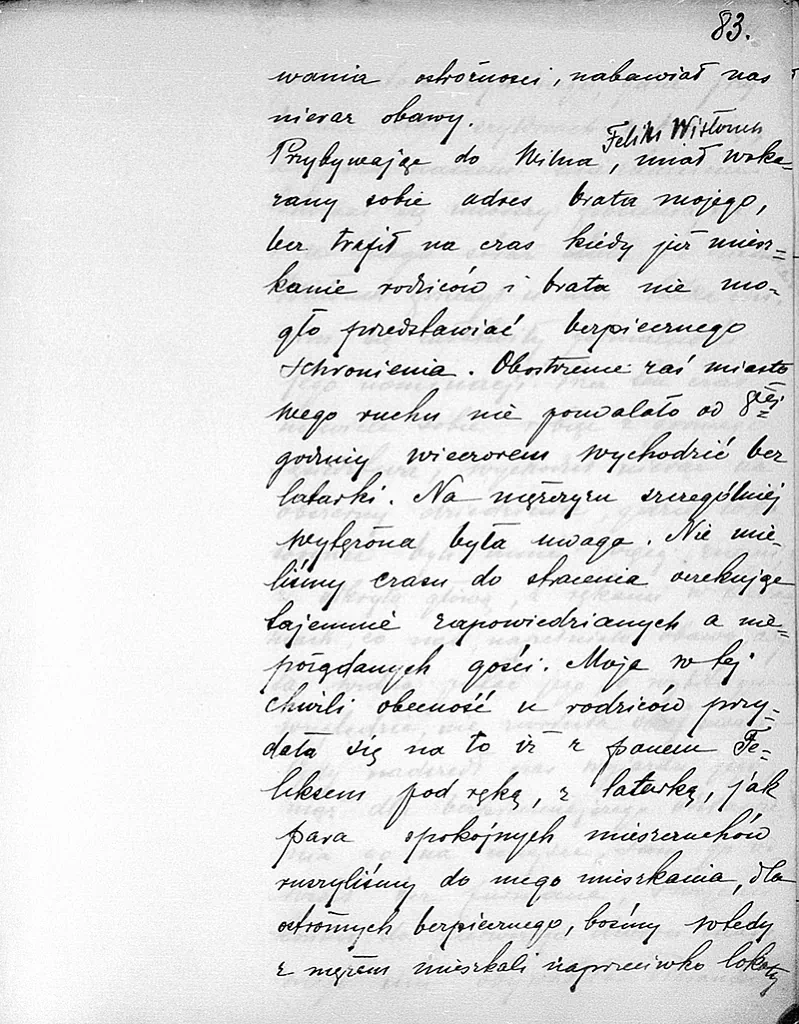 83.
wania ostrożności, nabawiał nas
nieraz obawy.
Feliks Wisłouch
Przybywając do Wilna, miał wska=
zany sobie adres brata mojego,
lecz trafił na czas kiedy już miesz=
kanie rodziców i brata nie mo=
gło przedstawiać bezpiecznego
schronienia. Obostrzenie zaś miasto
wego ruchu nie pozwalało od 8ej
godziny wieczorem wychodzić bez
latarki. Na mężczyzn szczególniej
wytężona była uwaga. Nie mie=
liśmy czasu do stracenia oczekując
tajemnie zapowiedzianych a nie=
pożądanych gości. Moje w tej
chwili obecność u rodziców przy=
dała się na to iż z panem Fe=
liksem pod ręką, z latarką, jak
para spokojnych mieszczuchów
ruszyliśmy do mego mieszkania, dla
ostrożnych bezpiecznego, bośmy wtedy
z mężem mieszkali naprzeciwko